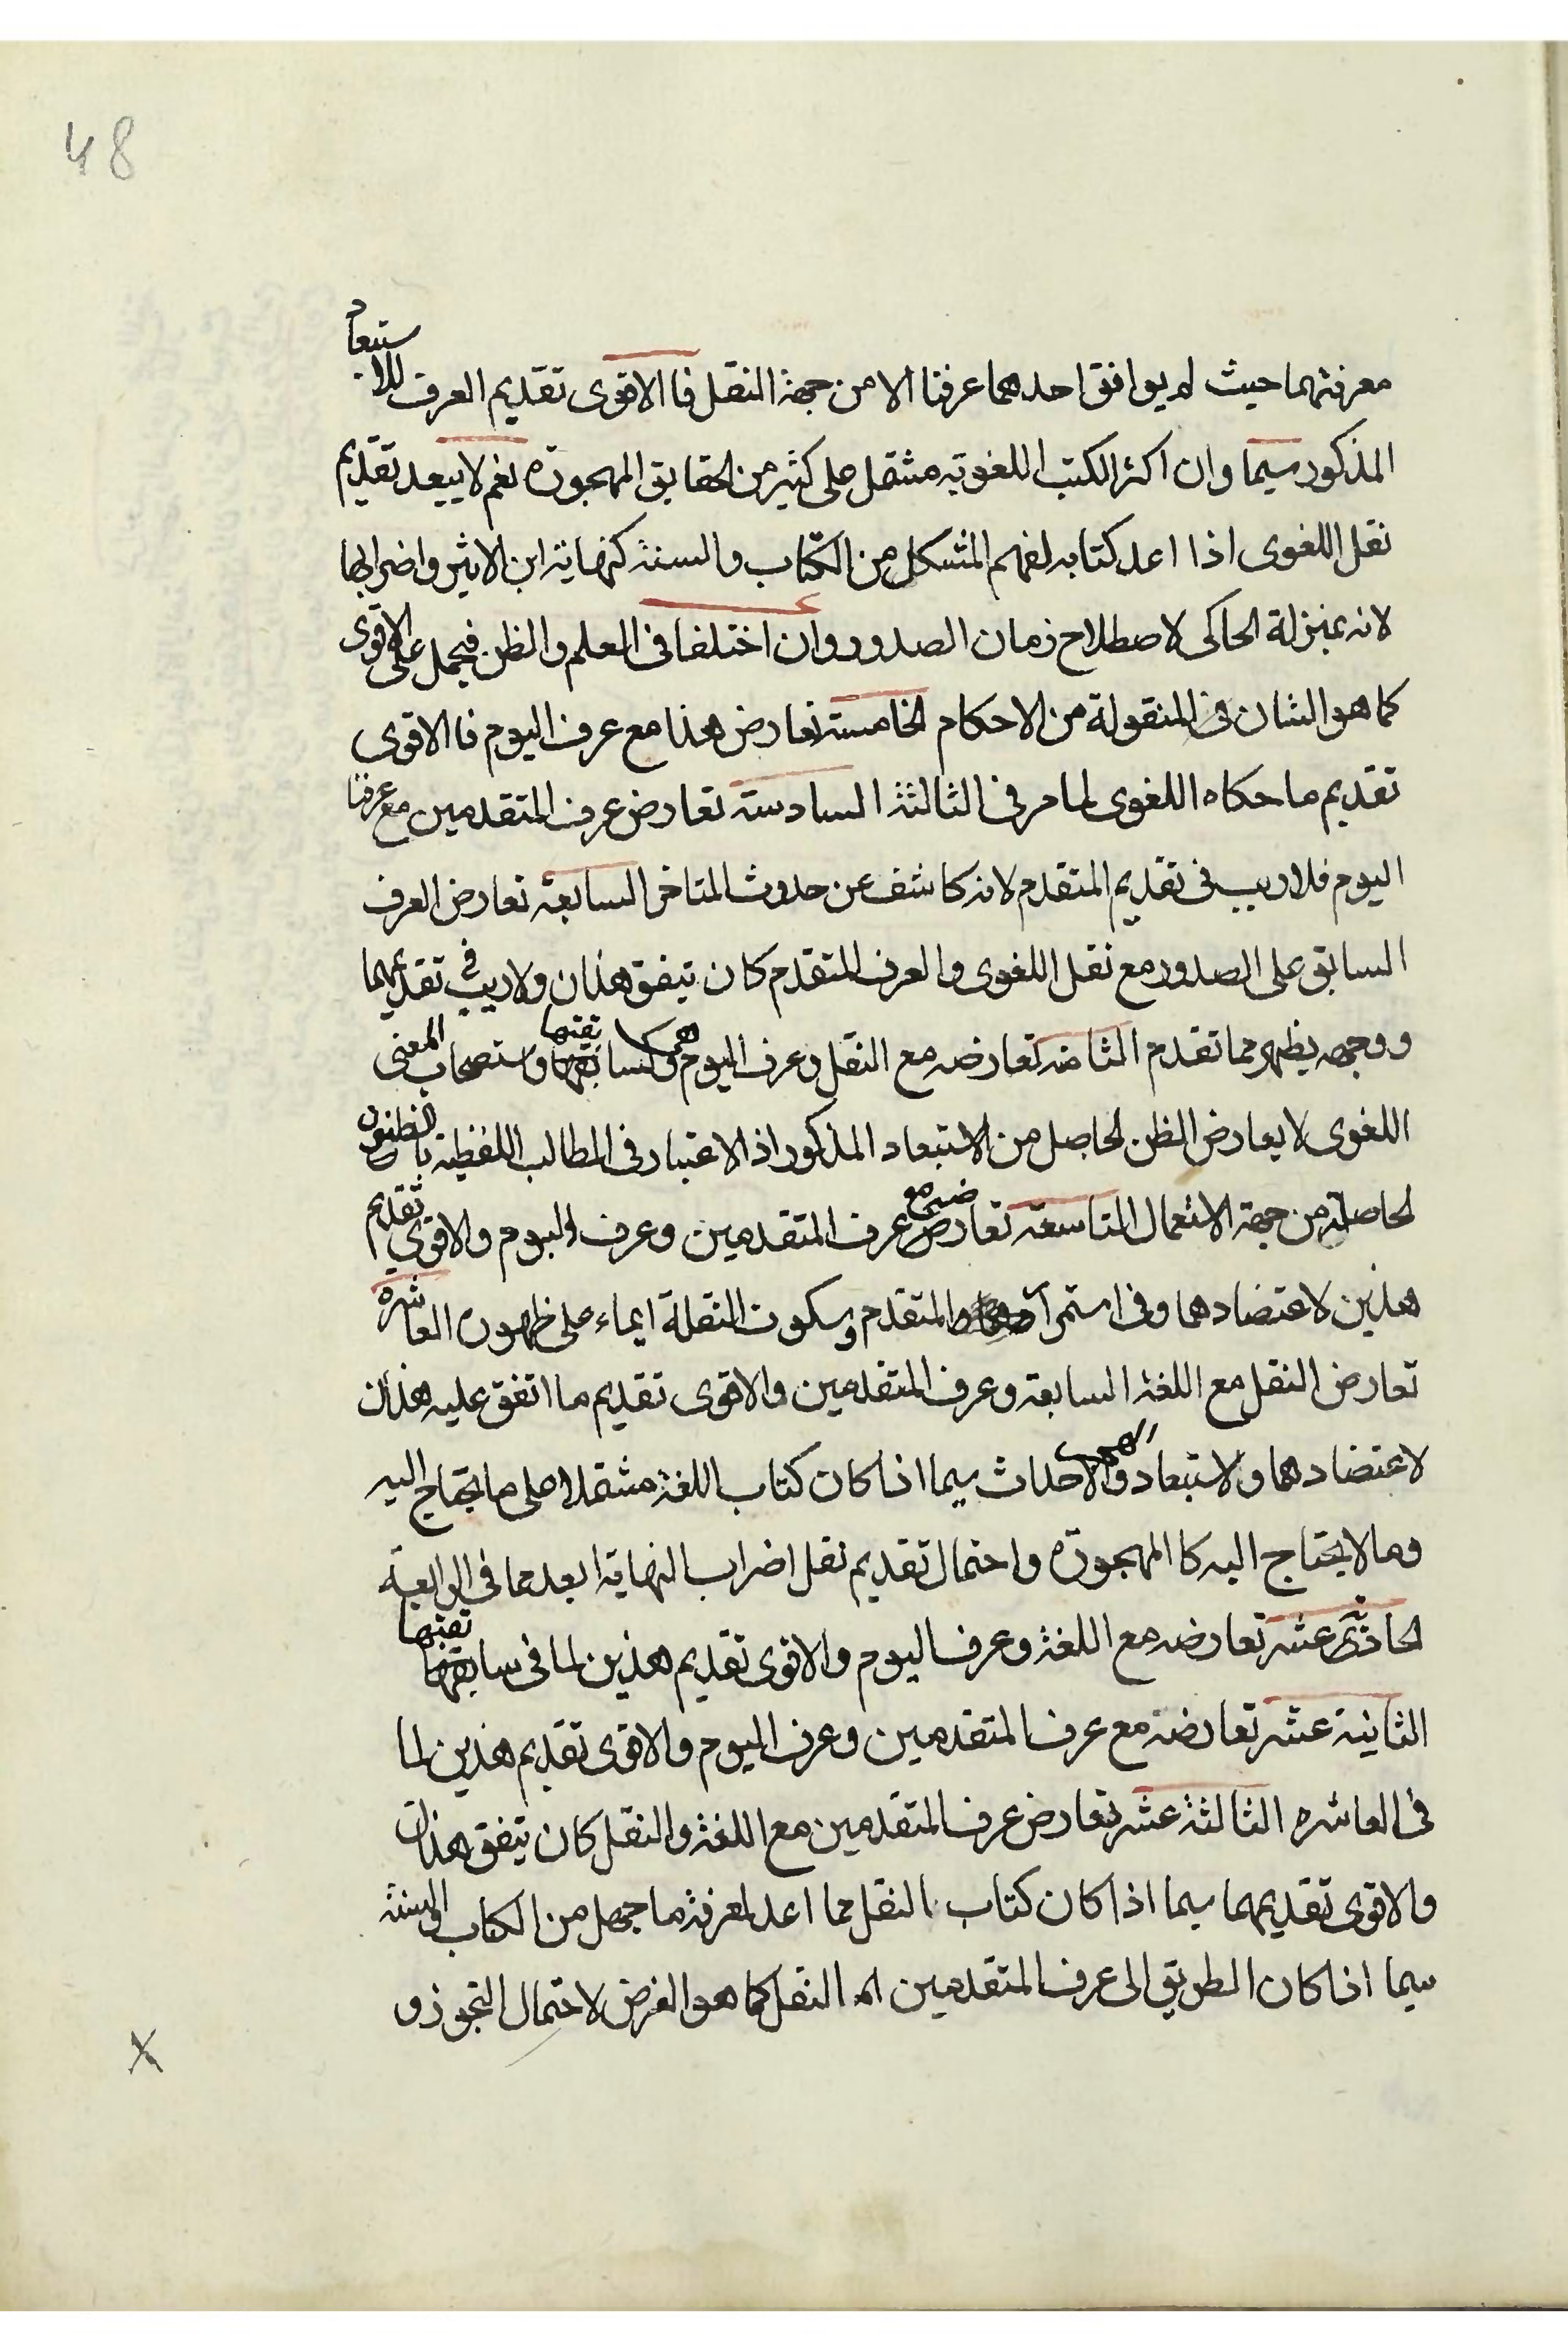 48
معرفتهما حيث لم يوافق احدهما عرفنا الا من جهة النقل فالاقوى تقديم العرف للاستبعاد
المذكور سيما وان اكثر الكتب اللغوية مشتمل على كثير من الحقايق المهجورة نعم لا يبعد تقديم
نقل اللغوى اذا اعد كتابه لفهم المشكل من الكتاب والسنة كنهاية ابن الاثير واضرابها
لانه بمنزلة الحاكى لاصطلاح زمان الصدور وان اختلفا فى العلم والظن فيحمل على الاقوى
كما هو الشان فى المنقولة من الاحكام الخامسة تعارض هذا مع عرف اليوم فالاقوى
تقديم ما حكاه اللغوى لما مر فى الثالثة السادسة تعارض عرف المتقدمين مع عرفنا
اليوم فلا ريب فى تقديم المتقدم لانه كاشف عن حدوث المتاخر السابعة تعارض العرف
السابق على الصدور مع نقل اللغوى والعرف المتقدم كان يتفق هذان ولا ريب فى تقديمهما
ووجهه يظهر مما تقدم الثامنة تعارضه مع النقل وعرف اليوم وهى كسابقتها واستصحاب المعنى
اللغوى لا يعارض الظن الحاصل من الاستبعاد المذكور اذ الاعتبار فى المطالب اللفظية بالظنون
الحاصلة من جهة الاستعمال التاسعة تعارضه مع عرف المتقدمين وعرف اليوم والاقوى تقديم
هذين لاعتضادهما وفى استمرار المتقدم وسكوت النقلة ايماء على ظهور العاشرة
تعارض النقل مع اللغة السابعة وعرف المتقدمين والاقوى تقديم ما اتفق عليه هذان
لاعتضادهما ولاستبعاد الهجر والاحداث سيما اذا كان كتاب اللغة مشتملا على ما يحتاج اليه
وما لا يحتاج اليه كالمهجورة واحتمال تقديم نقل اضراب النهاية ابعد مما فى الرابعة
الحادية عشر تعارضه مع اللغة وعرف اليوم والاقوى تقديم هذين لما فى سابقتها
الثانية عشر تعارضه مع عرف المتقدمين وعرف اليوم والاقوى تقديم هذين لما
فى العاشره الثالثة عشر تعارض عرف المتقدمين مع اللغة والنقل كان يتفق هذان
والاقوى تقديمهما سيما اذا كان كتاب النقل مما اعد لمعرفة ما جهل من الكتاب والسنة
سيما اذا كان الطريق الى عرف المتقدمين النقل كما هو الفرض لاحتمال التجوز و